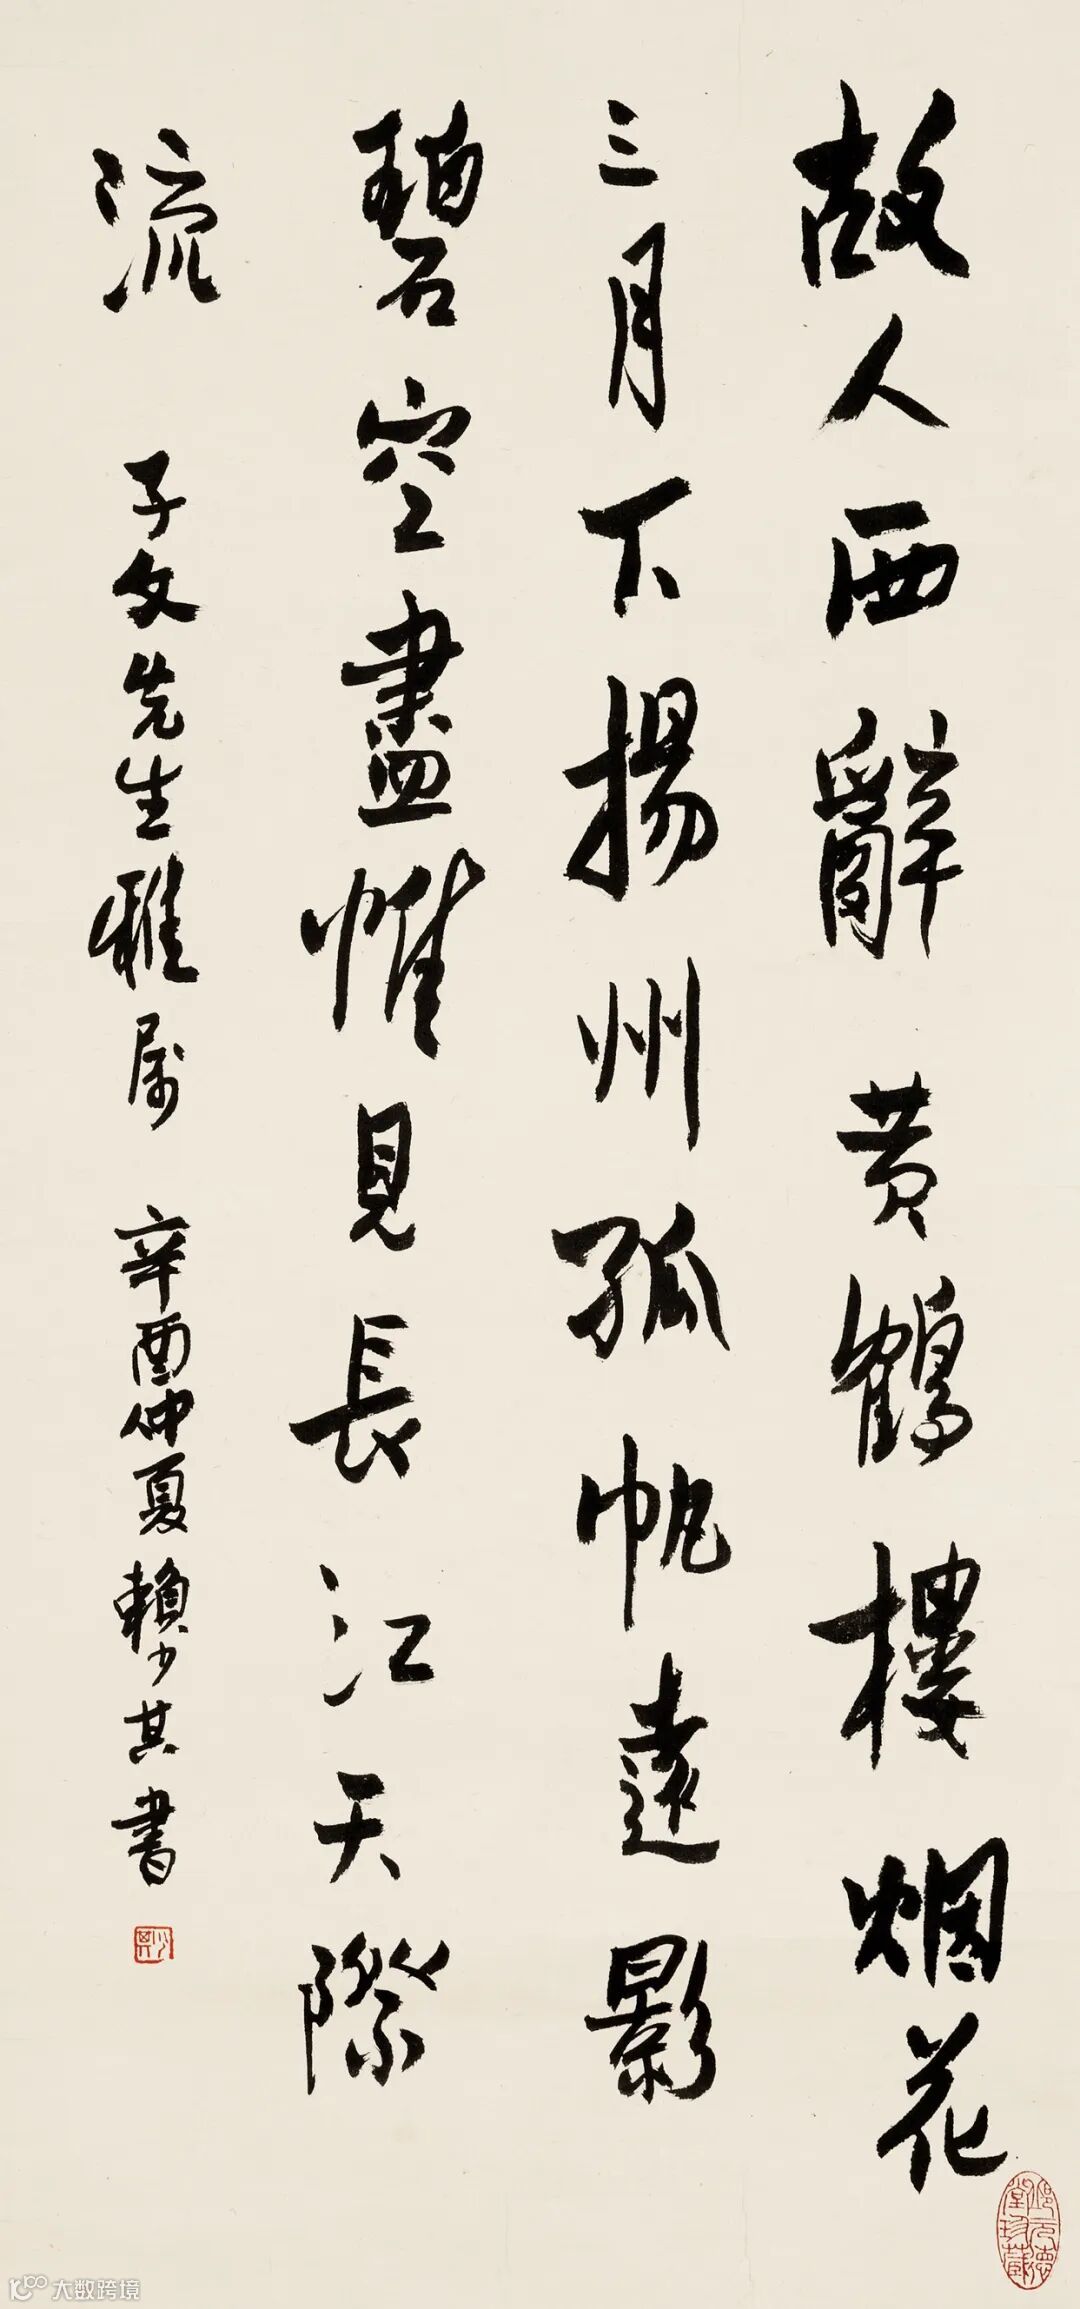 故人西辭黄鶴樓烟花
三月下揚州孤帆遠影
碧空盡惟見長江天際
流
子文先生雅属 辛酉仲夏賴少其書
少其
大数跨境